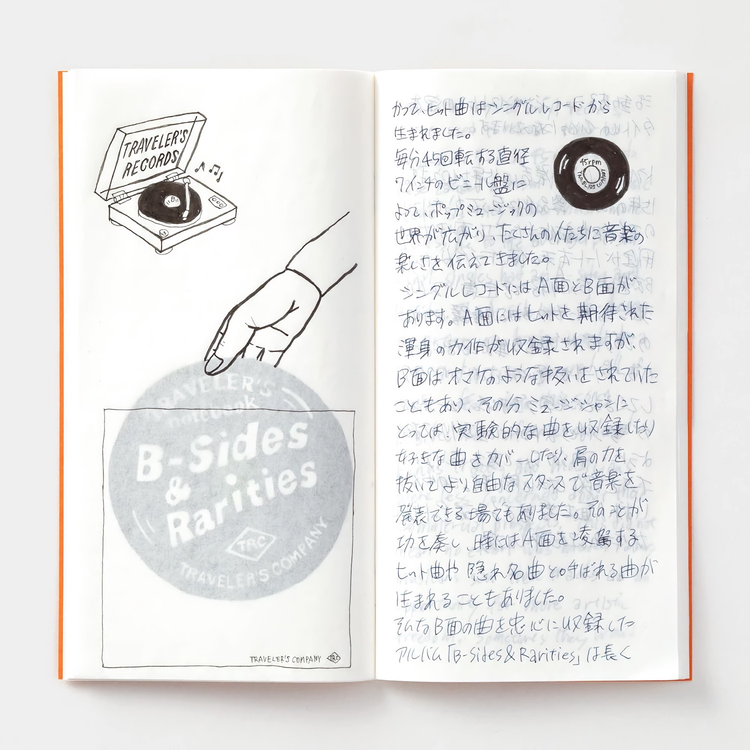 TRAVELER'S
RECORDS
TRAVELER'S
notebook
B-Sides
&
Rarities
TRC
TRAVELER'S COMPANY
TRAVELER'S COMPANY
かつて、ヒット曲はシングルレコードから
生まれました。
毎分45回転する直径
7インチのビニール盤に
よって、ポップミュージックの
世界が広がり、たくさんの人たちに音楽の
楽しさを伝えてきました。
シングルレコードにはA面とB面が
あります。A面にはヒットを期待された
渾身の力作が収録されますが、
B面はオマケのような扱いをされていた
こともあり、その分ミュージシャンに
とっては、実験的な曲を収録したり
好きな曲をカバーしたり、肩の力を
抜いてより自由なスタンスで音楽を
発表できる場でもありました。そのことが
功を奏し、時にはA面を凌駕する
ヒット曲や隠れ名曲と呼ばれる曲が
生まれることもありました。
そんなB面の曲を中心に収録した
アルバム「B-Sides&Rarities」は長く
45rpm